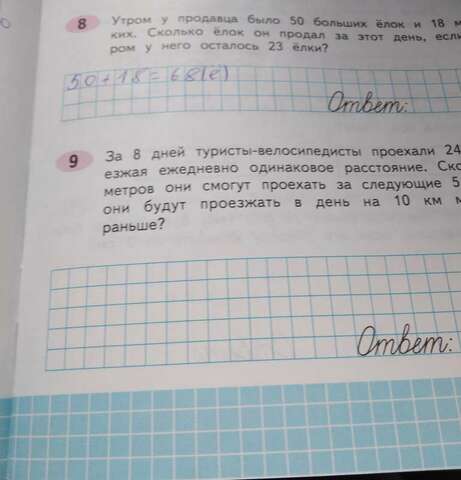 8 Утром у продавца было 50 больших ёлок и 18 м
ких. Сколько ёлок он продал за этот день, если
ром у него осталось 23 ёлки?
50+18=68(ё)
Ответ:
9 За 8 дней туристы-велосипедисты проехали 24
езжая ежедневно одинаковое расстояние. Ско
метров они смогут проехать за следующие 5
они будут проезжать в день на 10 км м
раньше?
Ответ: